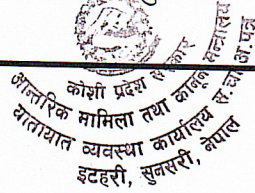 कोशी प्रदेश सरकार
आन्तरिक मामिला तथा कानून मन्त्रालय
यातायात व्यवस्था कार्यालय स.चा.अ.पत्र
इटहरी, सुनसरी, नेपाल